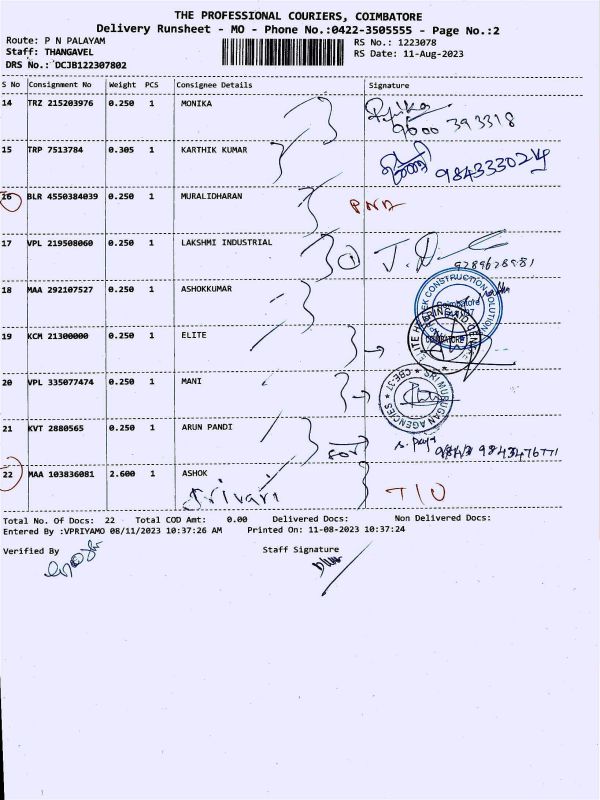 THE PROFESSIONAL COURIERS, COIMBATORE
Delivery Runsheet - MO - Phone No.:0422-3505555 - Page No.:2
Route: P N PALAYAM
RS No.: 1223078
Staff: THANGAVEL
RS Date: 11-Aug-2023
DRS No.: DCJB122307802
S No Consignment No Weight PCS Consignee Details Signature
14 TRZ 215203976 0.250 1 MONIKA
9600 393318
15 TRP 7513784 0.305 1 KARTHIK KUMAR
16 BLR 4550384039 0.250 1 MURALIDHARAN
17 VPL 219508060 0.250 1 LAKSHMI INDUSTRIAL
18 MAA 292107527 0.250 1 ASHOKKUMAR
19 KCM 21300000 0.250 1 ELITE
20 VPL 335077474 0.250 1 MANI
SRI MURUGAN AGENCIES * CBE-37 *
21 KVT 2880565 0.250 1 ARUN PANDI
22 MAA 103836081 2.600 1 ASHOK
Srivari
Total No. Of Docs: 22 Total COD Amt: 0.00 Delivered Docs: Non Delivered Docs:
Entered By :VPRIYAMO 08/11/2023 10:37:26 AM Printed On: 11-08-2023 10:37:24
Verified By Staff Signature